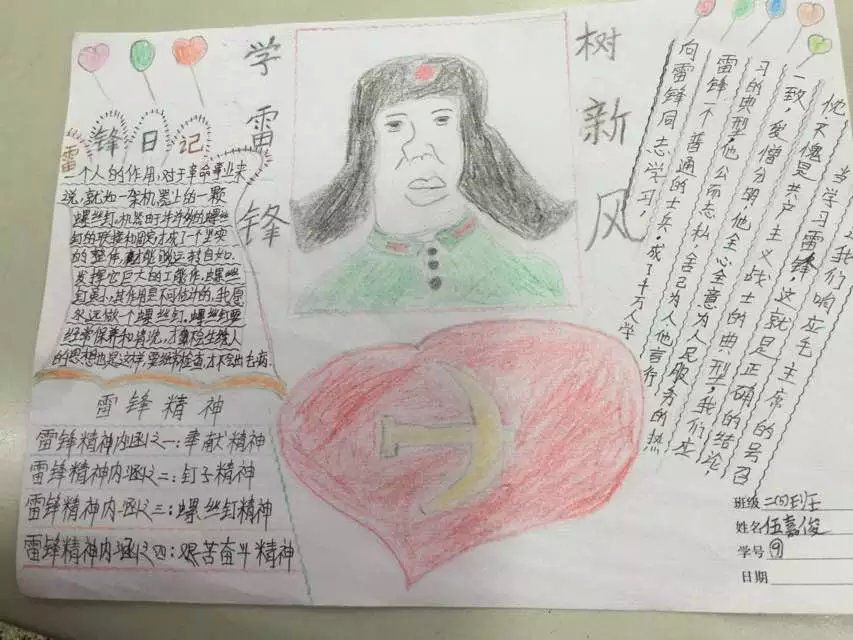 学雷锋
树新风
雷锋日记
一个人的作用,对于革命事业来
说,就如一架机器上的一颗
螺丝钉,机器由于有许多螺丝
钉的联接和固定,才成了一个坚实
的整体,才能够运转自如,
发挥它巨大的工作,螺丝
钉虽小,其作用是不可估计的,我愿
永远做个螺丝钉。螺丝钉要
经常保养和清洗,才会生锈人
的思想也是这样要经常检查才不会出毛病
雷锋精神
雷锋精神内涵之一:奉献精神
雷锋精神内涵之二:钉子精神
雷锋精神内涵之三:螺丝钉精神
雷锋精神内涵之四:艰苦奋斗精神
当我们响应毛主席的号召
向雷锋同志学习,
雷锋一个普通的士兵,成了千万人学
习的典型,他公而忘私,舍己为人他言行
一致,爱憎分明,他全心全意为人民服务的热
忱不愧是共产主义战士的典型,我们应
当学习雷锋,这就是正确的结论
班级 二四班
姓名 伍嘉俊
学号 ⑨
日期